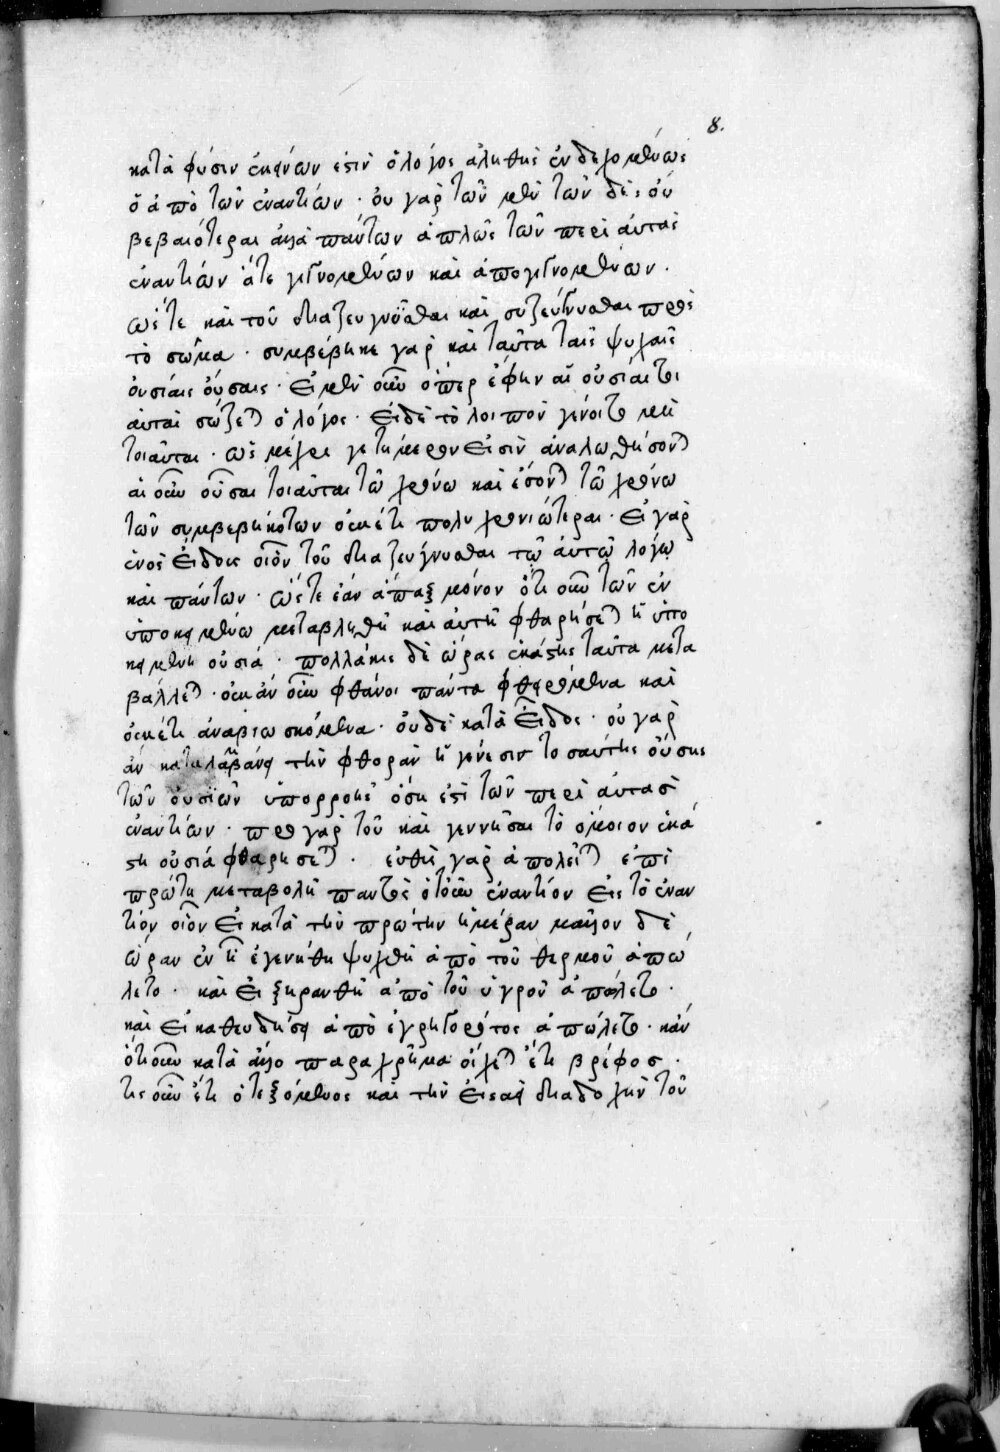 8.
κατὰ φύσιν ἐκείνων ἐστὶν ὁ λόγος ἀληθὴς ἐνδεχομένως
ὁ ἀπὸ τῶν ἐναντίων · οὐ γὰρ τῶν μὲν τῶν δὲ οὐ
βεβαιότεραι ἀλλὰ πάντων ἁπλῶς τῶν περὶ αὐτὰς
ἐναντίων ἅτε γιγνομένων καὶ ἀπογιγνομένων ·
ὥστε καὶ τοῦ διαζευγνύσθαι καὶ συζεύγνυσθαι πρὸς
τὸ σῶμα · συμβέβηκε γὰρ καὶ ταῦτα ταῖς ψυχαῖς
οὐσίαις οὔσαις · εἰ μὲν οὖν ὅπερ ἔφην αἱ οὐσίαι τοι
αῦται σώζεται ὁ λόγος · εἰ δὲ τὸ λοιπὸν γένοιτο μὴ
τοιαῦται · ὡς μέχρι γε τήμερον εἰσὶν ἀναλωθήσονται
αἱ οὖν οὖσαι τοιαῦται τῶ χρόνω καὶ ἔσονται τῶ χρόνω
τῶν συμβεβηκότων οὐκέτι πολυχρονιώτεραι · εἰ γὰρ
ἑνὸς εἴδους οἷον τοῦ διαζεύγνυσθαι τῶ αὐτῶ λόγω
καὶ πάντων · ὥστε ἐὰν ἅπαξ μόνον ὁτιοῦν τῶν ἐν
ὑποκειμένω μεταβληθῆ καὶ αὐτὴ φθαρήσεται ἡ ὑπο
κειμένη οὐσία · πολλάκις δὲ ὥρας ἑκάστης ταῦτα μετα
βάλλεται · οὐκ ἂν οὖν φθάνοι πάντα φθειρόμενα καὶ
οὐκέτι ἀναβιωσκόμενα · οὐδὲ κατὰ εἶδος · οὐ γὰρ
ἂν καταλαμβάνει τὴν φθορὰν ἡ γένεσις τοσαύτης οὔσης
τῶν οὐσιῶν ὑπορροῆς ὅση ἐστὶ τῶν περὶ αὐτὰς
ἐναντίων · πρὸ γὰρ τοῦ καὶ γεννῆσαι τὸ ὅμοιον ἑκά
στη οὐσία φθαρήσεται · εὐθὺς γὰρ ἀπολεῖται ἐπὶ
πρώτη μεταβολῆ παντὸς ὁτοῦουν ἐναντίον εἰς τὸ ἐναν
τίον οἷον εἰ κατὰ τὴν πρώτην ἡμέραν μᾶλλον δὲ
ὥραν ἐν ἧ ἐγενήθη ψυχθῆ ἀπὸ τοῦ θερμοῦ ἀπώ
λετο · καὶ εἰ ξηρανθῆ ἀπὸ τοῦ ὑγροῦ ἀπώλετο ·
καὶ εἰ καθευδήσει ἀπὸ ἐγρηγορότος ἀπώλετο · κἂν
ὁτιοῦν κατὰ ἄλλο παραχρῆμα οἴχεται ἔτι βρέφος ·
τίς οὖν ἔτι ὁ τεξόμενος καὶ τὴν εἰσαεὶ διαδοχὴν τοῦ